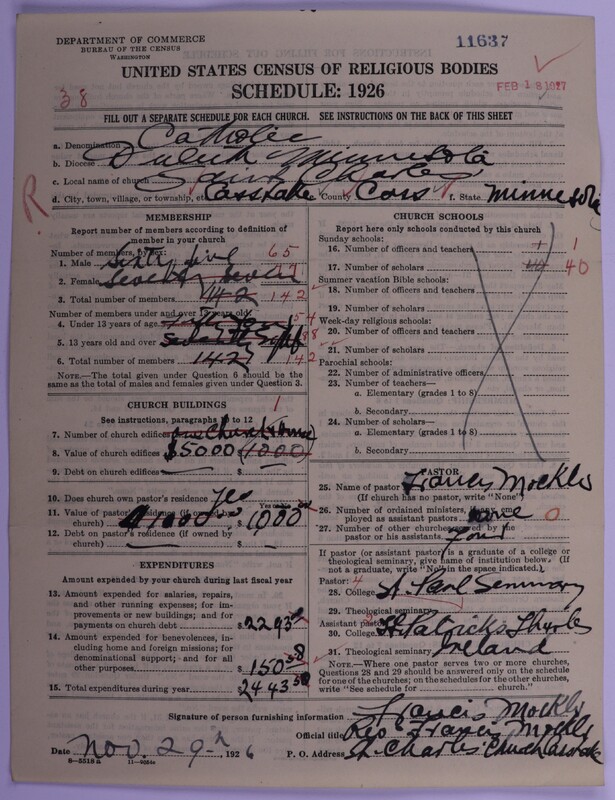 DEPARTMENT OF COMMERCE
BUREAU OF THE CENSUS
WASHINGTON
11637
UNITED STATES CENSUS OF RELIGIOUS BODIES
SCHEDULE: 1926
FEB 18 1927
38
FILL OUT A SEPARATE SCHEDULE FOR EACH CHURCH. SEE INSTRUCTIONS ON THE BACK OF THIS SHEET
a. Denomination Catholic
b. Diocese Duluth Minnesota
c. Local name of church Saint Charles
d. City, town, village, or township, etc. Casslake County Cass f. State Minnesota
R
MEMBERSHIP
Report number of members according to definition of
member in your church
Number of members, by sex:
1. Male Sixty five 65
2. Female Seventy Seven 77
3. Total number of members 142 142
Number of members under and over 13 years old:
4. Under 13 years of age 54
5. 13 years old and over Seventy eight 88
6. Total number of members 142 142
NOTE.—The total given under Question 6 should be
the same as the total of males and females given under Question 3.
CHURCH BUILDINGS
See instructions, paragraphs 10 to 12
7. Number of church edifices one Church & House 1
8. Value of church edifices $5000 (1000)
9. Debt on church edifices $
10. Does church own pastor's residence yes
11. Value of pastor's residence (if owned by
church) $ 1000
12. Debt on pastor's residence (if owned by
church) $
EXPENDITURES
Amount expended by your church during last fiscal year
13. Amount expended for salaries, repairs,
and other running expenses; for im-
provements or new buildings; and for
payments on church debt $ 2293
14. Amount expended for benevolences,
including home and foreign missions; for
denominational support; and for all
other purposes $ 150 58
15. Total expenditures during year $ 2443 58
CHURCH SCHOOLS
Report here only schools conducted by this church
Sunday schools:
16. Number of officers and teachers 1 1
17. Number of scholars 40 40
Summer vacation Bible schools:
18. Number of officers and teachers
19. Number of scholars
Week-day religious schools:
20. Number of officers and teachers
21. Number of scholars
Parochial schools:
22. Number of administrative officers
23. Number of teachers—
a. Elementary (grades 1 to 8)
b. Secondary
24. Number of scholars—
a. Elementary (grades 1 to 8)
b. Secondary
PASTOR
25. Name of pastor Francis Mockler
(If church has no pastor, write "None")
26. Number of ordained ministers, if any, em-
ployed as assistant pastors none 0
27. Number of other churches served by the
pastor or his assistants Four
If pastor (or assistant pastor) is a graduate of a college or
theological seminary, give name of institution below. (If
not a graduate, write "No" in the space indicated.)
Pastor: 4
28. College St. Paul Seminary
29. Theological seminary
Assistant pastor:
30. College St Patricks Thurles
31. Theological seminary Ireland
NOTE.—Where one pastor serves two or more churches,
Questions 28 and 29 should be answered only on the schedule
for one of the churches; on the schedules for the other churches,
write "See schedule for church."
Signature of person furnishing information Francis Mockler
Official title Rev. Francis Mockler
Date Nov. 29th, 1926
P. O. Address St. Charles Church Casslake
8—5518 a
11—9084a